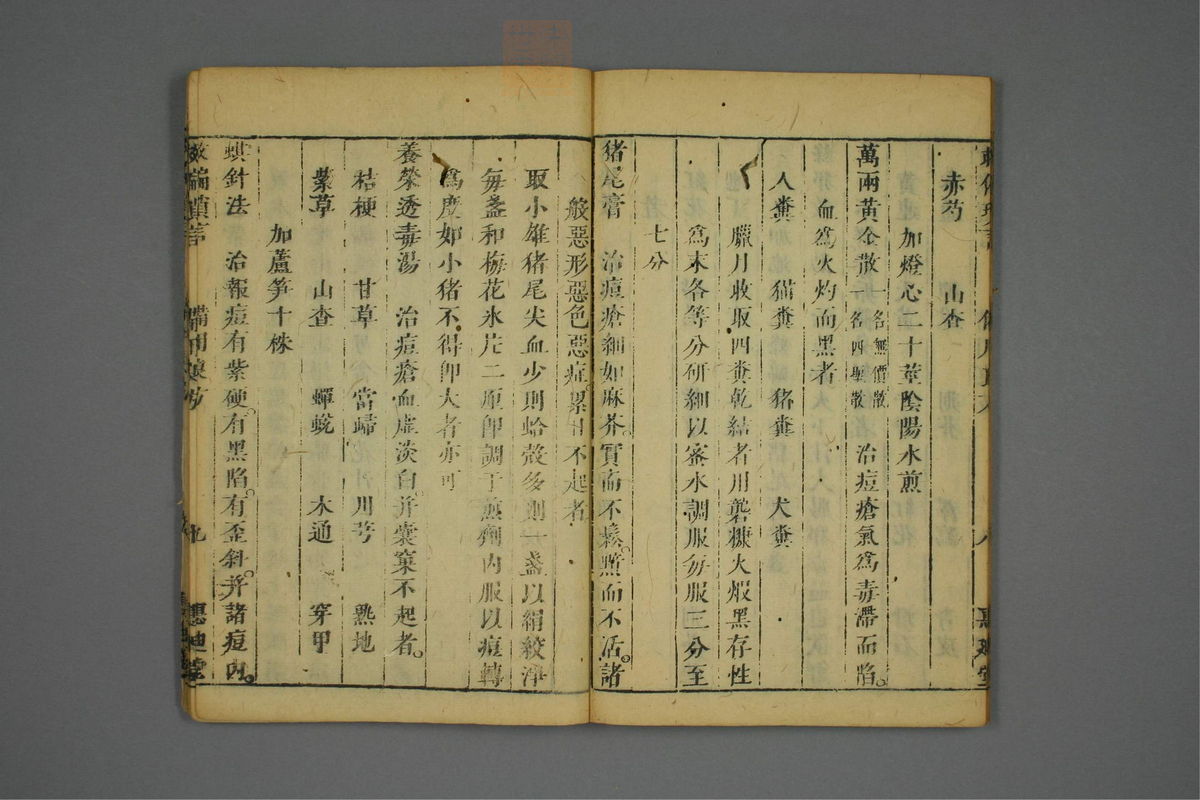 赤芍　山查
加燈心二十莖陰陽水煎
萬兩黃金散一名無價散一名四聖散　治痘瘡氣爲毒滯而陷。
血爲火灼而黑者
人糞　猫糞　猪糞　犬糞
臘月收取四糞乾結者用礱糠火煆黑存性
爲末各等分研細以蜜水調服每服三分至
七分
猪尾膏　治痘瘡細如麻芥。實而不鬆。黑而不活。諸
般惡形惡色惡症。累日不起者
取小雄猪尾尖血少則蛤殼多則一盞以絹絞淨
每盞和梅花氷片二厘卽調于煎劑內服以痘轉
爲度如小猪不得卽大者亦可
養榮透毒湯　治痘瘡血虛淡白并囊窠不起者。
桔梗　甘草　當歸　川芎　熟地
紫草　山查　蟬蛻　木通　穿甲
加蘆笋十株
蜞針法　治報痘有紫硬。有黑陷。有歪斜。并諸痘內。
救偏瑣言　備用良方　九　惠迪堂